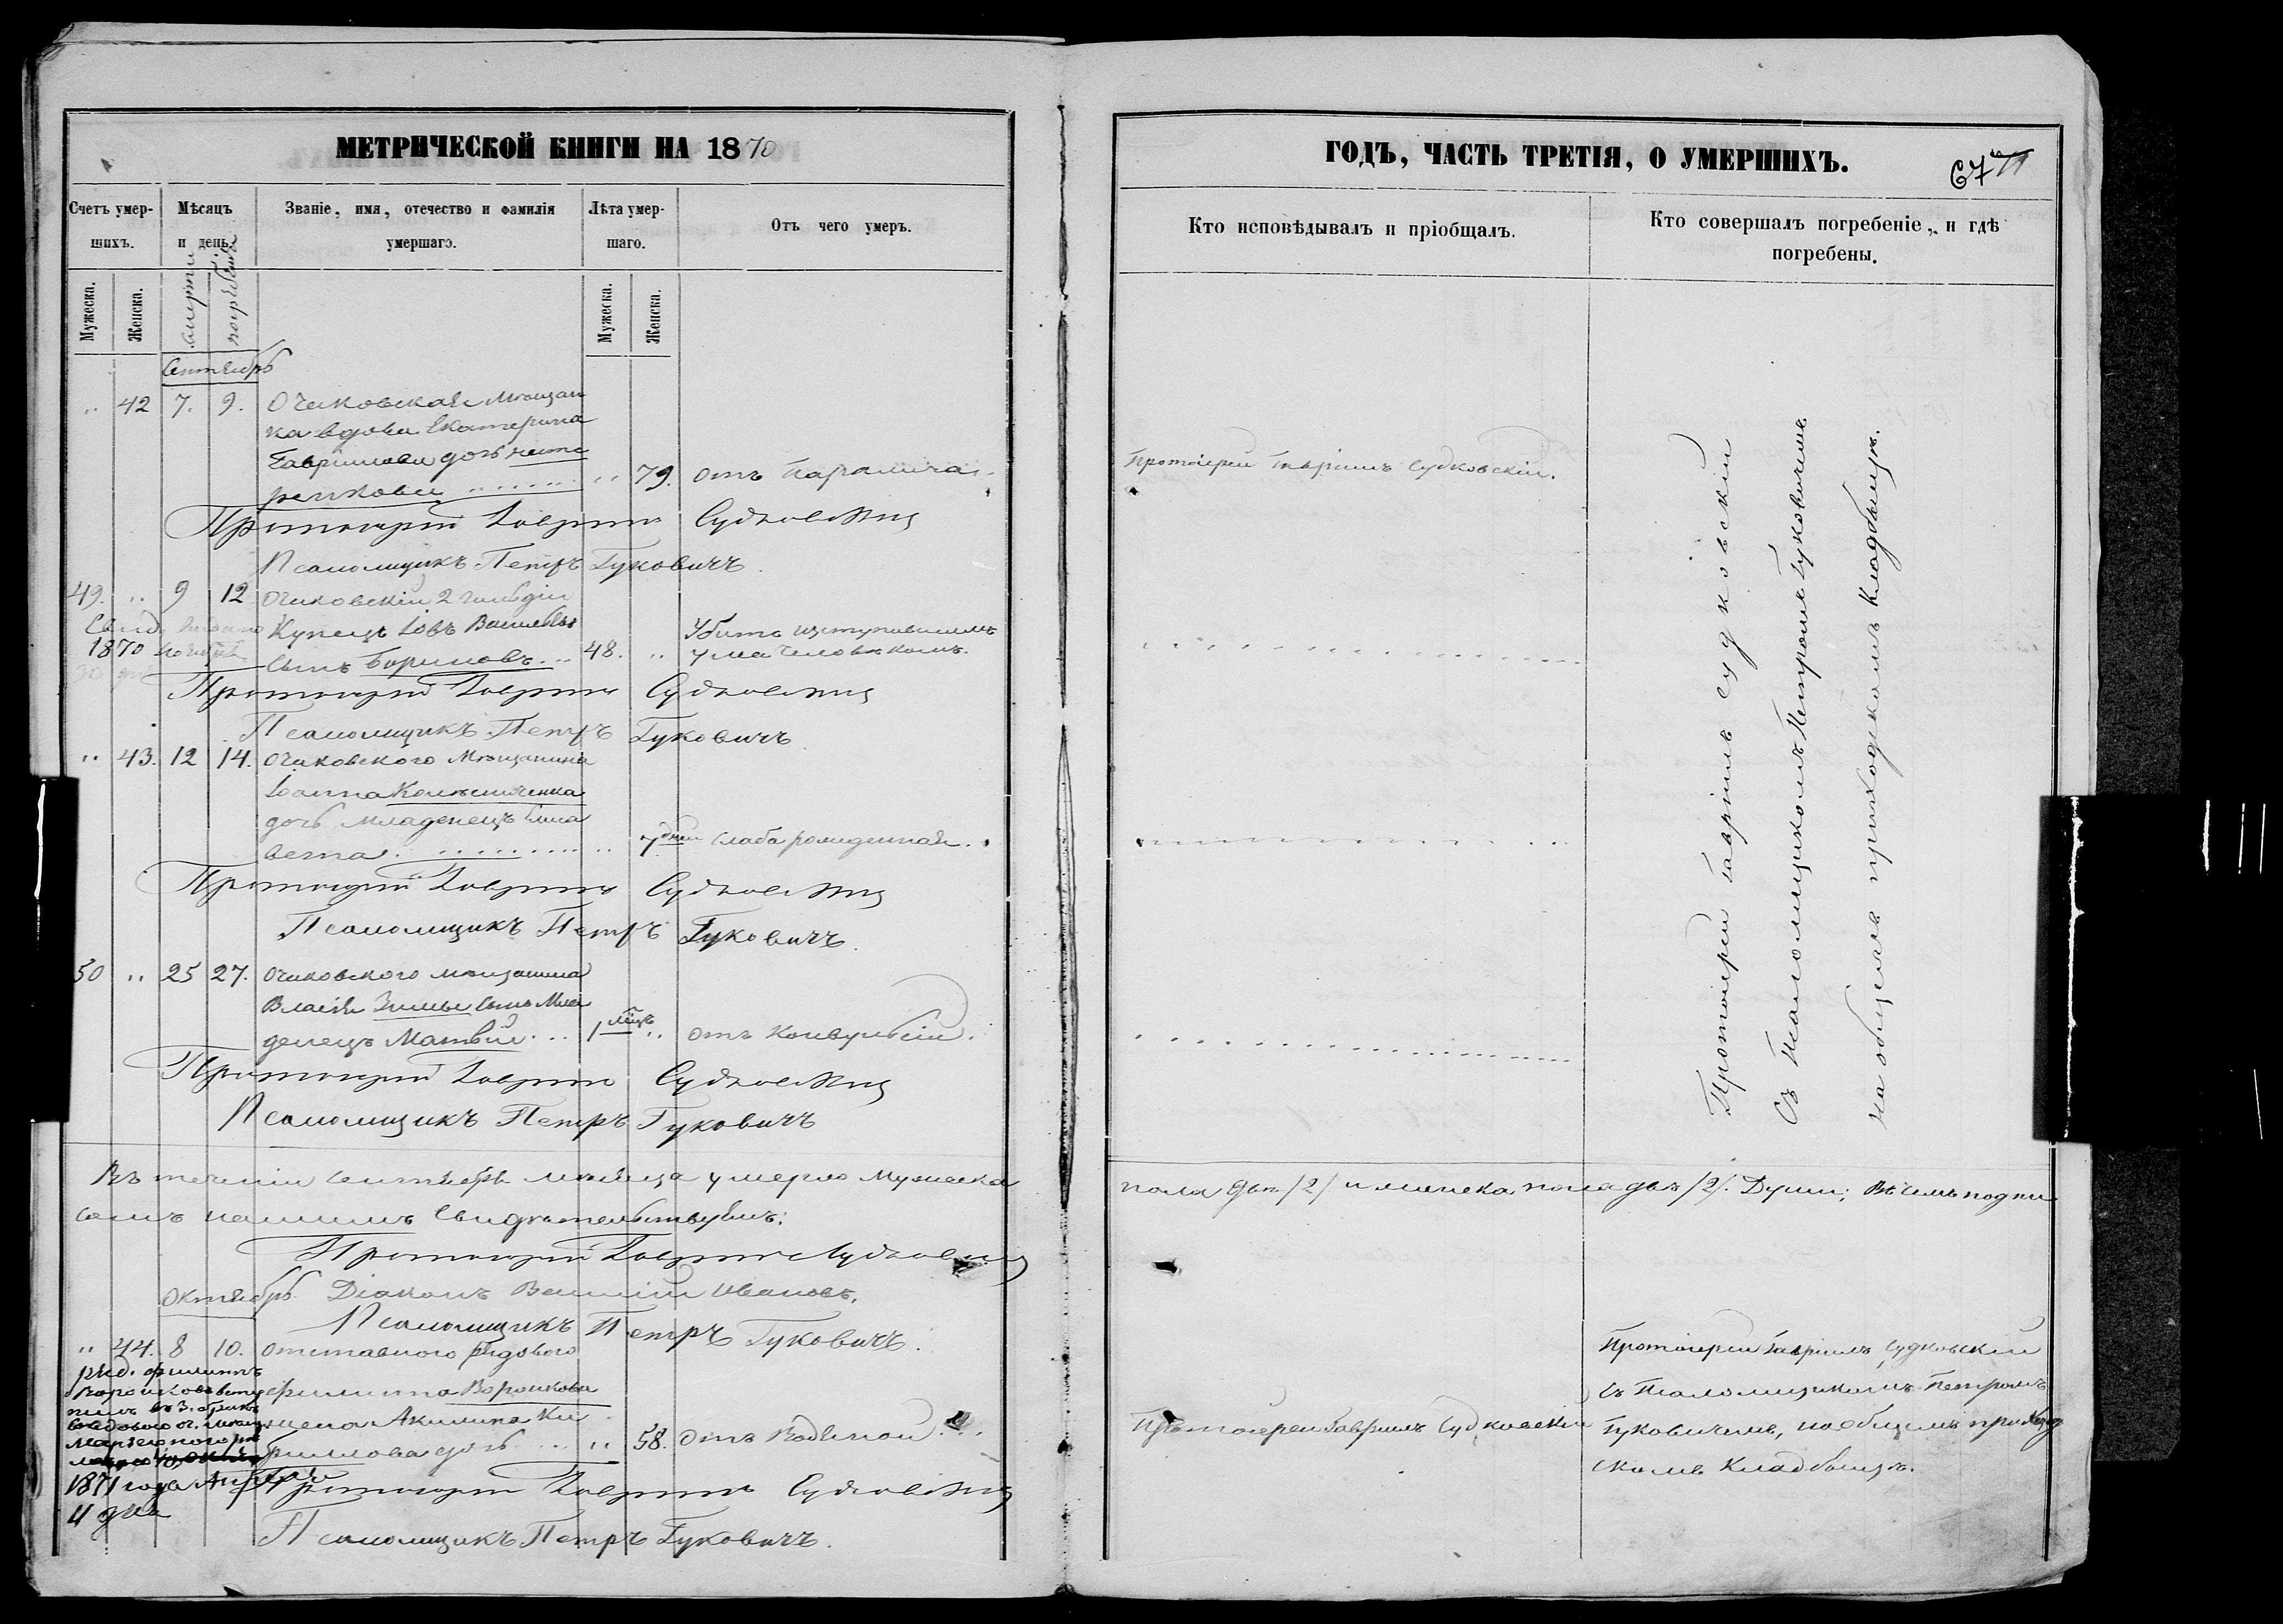 МЕТРИЧЕСКОЙ КНИГИ НА 1870
Счетъ умер-
шихъ.
Мѣсяцъ
и день.
Званіе, имя, отечество и фамилія
умершаго.
Лѣта умер-
шаго.
Отъ чего умеръ.
Мужеска.
Женска.
смерти
погребенія
Мужеска.
Женска.
Сентябрь
.. 42 7. 9. Очаковская мѣщан
ка вдова Екатерина
Гавріилова дочь
.. 79. отъ паралича.
Протоіерей Гавріилъ Судковскій
Псаломщикъ Петръ Гуковичъ.
49. .. 9 12 Очаковскій 2 гильдіи
Купецъ Іовъ Васильевъ
сынъ Бориловъ... 48. ..
Убитъ изступившимъ
ума человѣкомъ.
1870 ноября
Протоіерей Гавріилъ Судковскій
Псаломщикъ Петръ Гуковичъ
.. 43. 12 14. Очаковского мѣщанина
Іоанна
дочь младенецъ Елиса
вета .. 7 дней слабо рожденная.
Протоіерей Гавріилъ Судковскій
Псаломщикъ Петръ Гуковичъ.
50 .. 25 27. Очаковского мѣщанина
Власія Зимы сынъ мла
денецъ Матвій... 1 мѣс. .. отъ конвульсіи.
Протоіерей Гавріилъ Судковскій
Псаломщикъ Петръ Гуковичъ
Въ теченіи сентября мѣсяца умерло мужеска
семъ нашимъ свидѣтельствуемъ:
Протоіерей Гавріилъ Судковскій
Октябрь Діаконъ Василій Ивановъ.
Псаломщикъ Петръ Гуковичъ.
.. 44. 8 10. Отставного рядового
Филиппа Воронкова
жена Акилина Ки
риллова дочь ... .. 58. отъ водяной.
ряд. Филиппъ
Воронковъ всту
пилъ въ 3. бракъ
1871 года Апрѣля
11 дня
Протоіерей Гавріилъ Судковскій
Псаломщикъ Петръ Гуковичъ.
ГОДЪ, ЧАСТЬ ТРЕТІЯ, О УМЕРШИХЪ.
67
Кто исповѣдывалъ и пріобщалъ.
Кто совершалъ погребеніе, и гдѣ
погребены.
Протоіерей Гавріилъ Судковскій.
Протоіерей Гавріилъ Судковскій
Съ Псаломщикомъ Петромъ Гуковичемъ
на общемъ приходскомъ кладбищѣ.
пола двѣ /2/ и женска пола двѣ /2/. Души; Въ чемъ подпи
Протоіерей Гавріилъ Судковскій
Протоіерей Гавріилъ Судковскій
съ Псаломщикомъ Петромъ
Гуковичемъ, на общемъ приход
скомъ кладбищѣ.